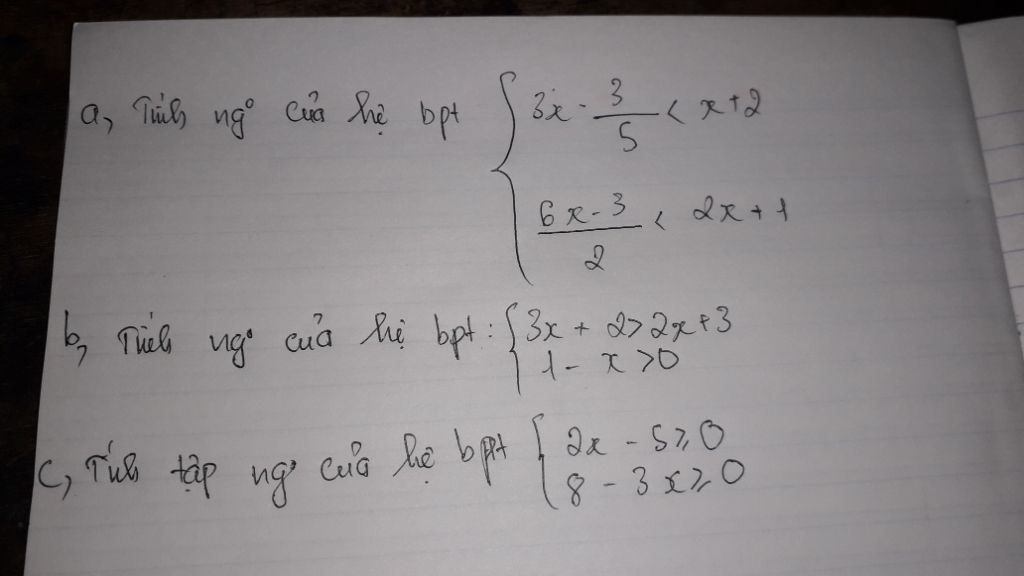 a, Tính ngo của hệ bpt { 3x - 3/5 < x + 2
(6x - 3)/2 < 2x + 1
b, Tính ngo của hệ bpt: { 3x + 2 > 2x + 3
1 - x > 0
c, Tính tập ngo của hệ bpt { 2x - 5 ≥ 0
8 - 3x ≥ 0